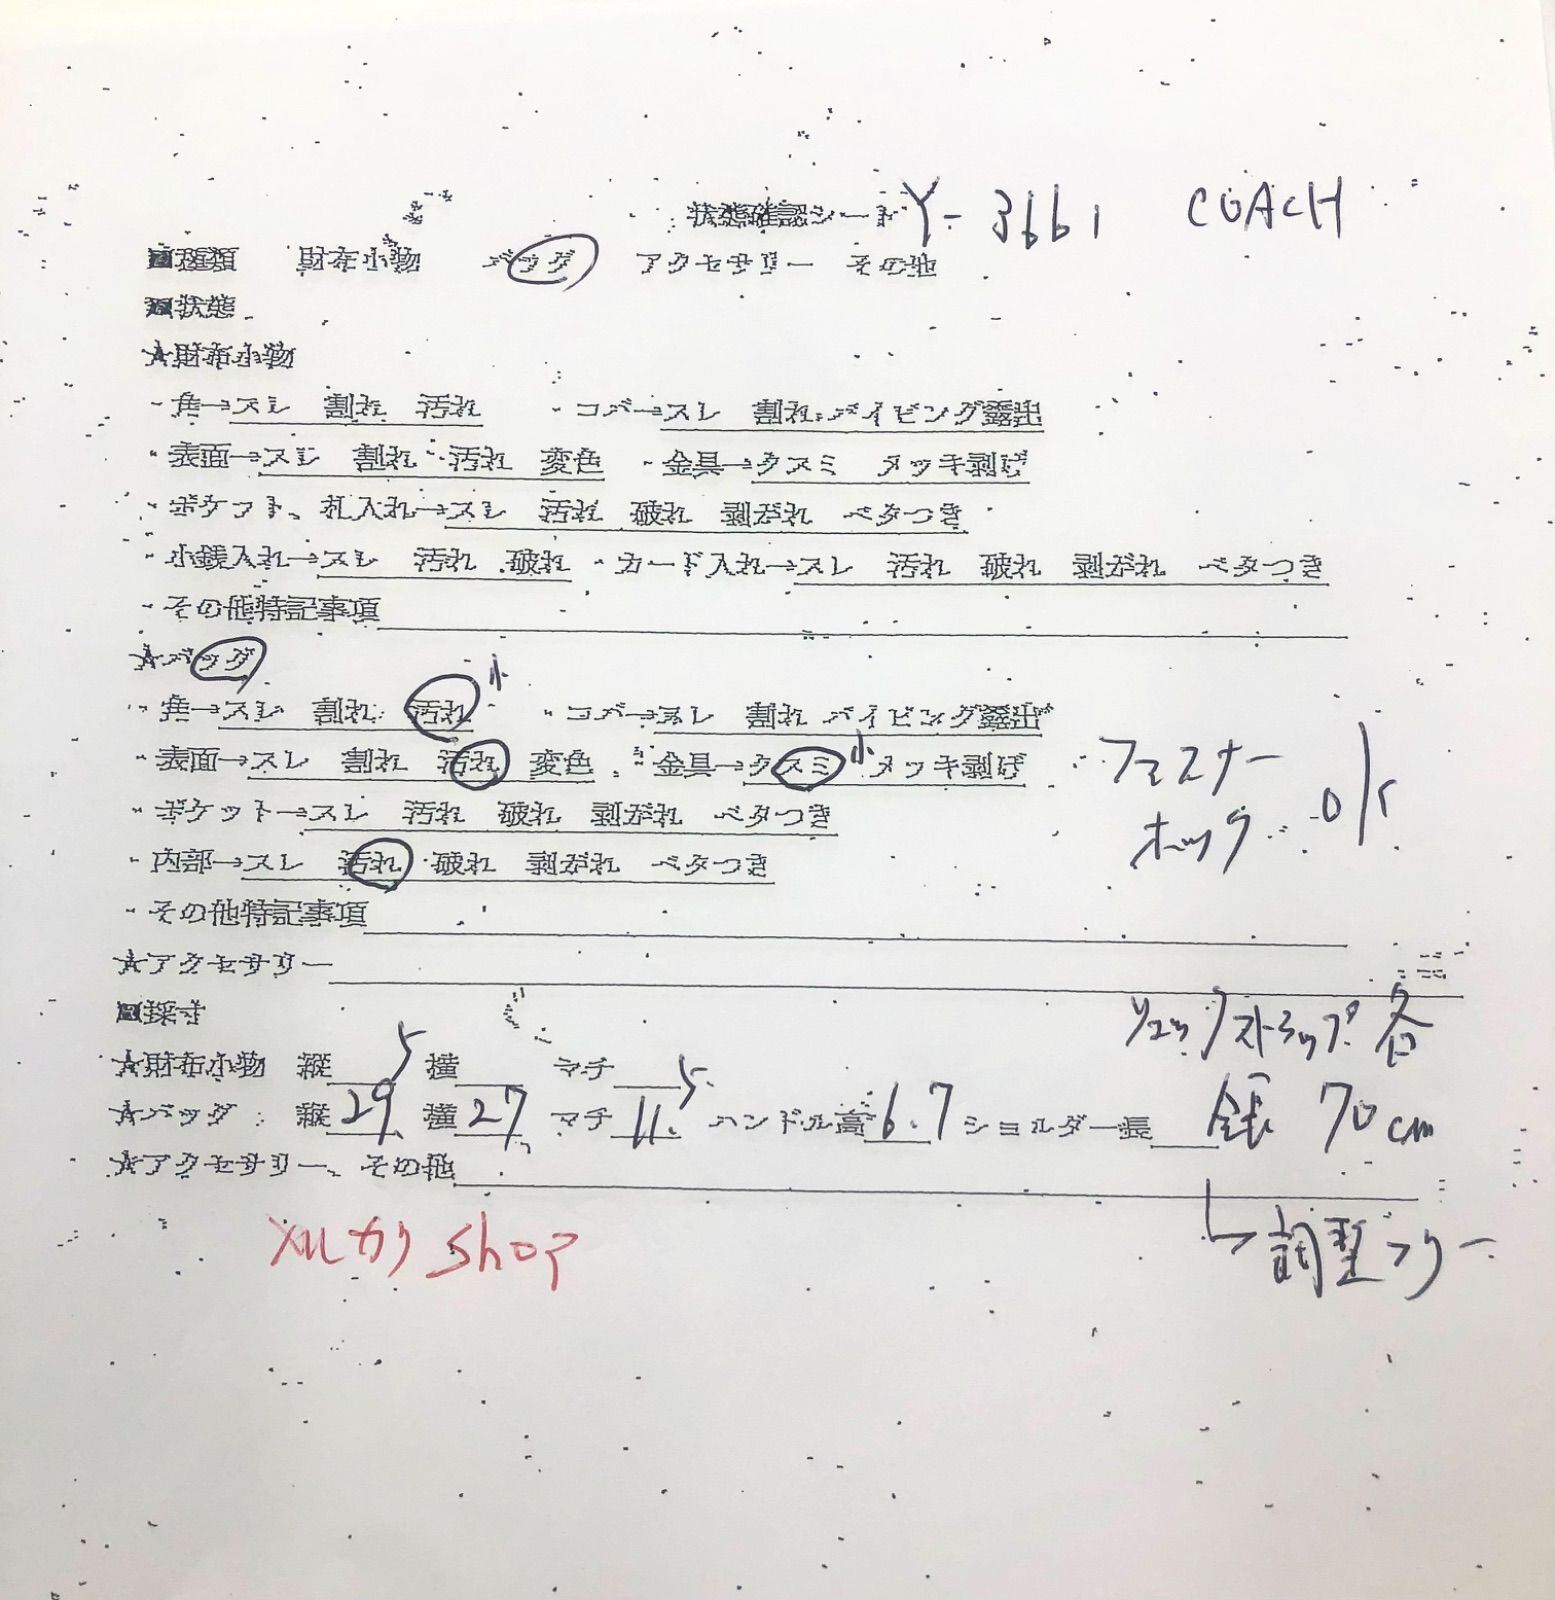 状態確認シート Y-3661 COACH
■種類 財布小物 バッグ アクセサリー その他
■状態
★財布小物
・角→スレ 割れ 汚れ ・コバ→スレ 割れ パイピング露出
・表面→スレ 割れ 汚れ 変色 ・金具→クスミ メッキ剥げ
・ポケット、札入れ→スレ 汚れ 破れ 剥がれ ベタつき
・小銭入れ→スレ 汚れ 破れ ・カード入れ→スレ 汚れ 破れ 剥がれ ベタつき
・その他特記事項
★バッグ
・角→スレ 割れ 汚れ 小 ・コバ→スレ 割れ パイピング露出
・表面→スレ 割れ 汚れ 変色 ・金具→クスミ 小 メッキ剥げ ファスナー
・ポケット→スレ 汚れ 破れ 剥がれ ベタつき ホック
・内部→スレ 汚れ 破れ 剥がれ ベタつき
・その他特記事項
★アクセサリー
■採寸 リュックストラップ 各
★財布小物 縦 横 マチ
★バッグ 縦 29.5 横 27 マチ 11.5 ハンドル高 6.7 ショルダー長 全長 70cm
★アクセサリー、その他
└→調整フリー
メルカリ shop